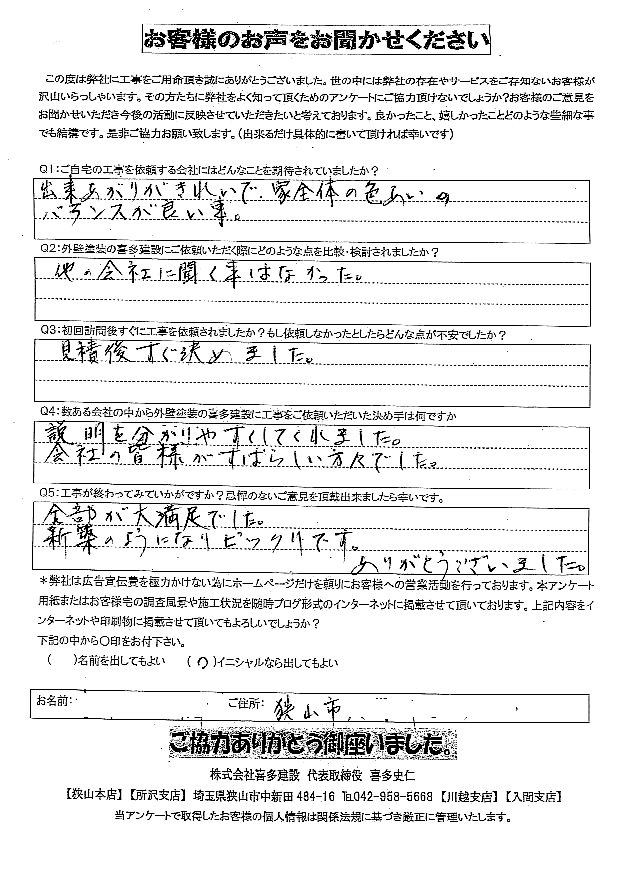 お客様のお声をお聞かせください
この度は弊社に工事をご用命頂き誠にありがとうございました。世の中には弊社の存在やサービスをご存知ないお客様が
沢山いらっしゃいます。その方たちに弊社をよく知って頂くためのアンケートにご協力頂けないでしょうか？お客様のご意見を
お聞かせいただき今後の活動に反映させていただきたいと考えております。良かったこと、嬉しかったことどのような些細な事
でも結構です。是非ご協力お願い致します。（出来るだけ具体的に書いて頂ければ幸いです）
Q1：ご自宅の工事を依頼する会社にはどんなことを期待されていましたか？
出来あがりがきれいで、家全体の色あいの
バランスが良い事。
Q2：外壁塗装の喜多建設にご依頼いただく際にどのような点を比較・検討されましたか？
他の会社に聞く事はなかった。
Q3：初回訪問後すぐに工事を依頼されましたか？もし依頼しなかったとしたらどんな点が不安でしたか？
見積後すぐ決めました。
Q4：数ある会社の中から外壁塗装の喜多建設に工事をご依頼いただいた決め手は何ですか
説明を分かりやすくしてくれました。
会社の皆様がすばらしい方々でした。
Q5：工事が終わってみていかがですか？忌憚のないご意見を頂戴出来ましたら幸いです。
全部が大満足でした。
新築のようになりビックリです。
ありがとうございました。
＊弊社は広告宣伝費を極力かけない為にホームページだけを頼りにお客様への営業活動を行っております。本アンケート
用紙またはお客様宅の調査風景や施工状況を随時ブログ形式のインターネットに掲載させて頂いております。上記内容をイ
ンターネットや印刷物に掲載させて頂いてもよろしいでしょうか？
下記の中から〇印をお付下さい。
（　）名前を出してもよい　（〇）イニシャルなら出してもよい
お名前：　ご住所：狭山市
ご協力ありがとう御座いました。
株式会社喜多建設 代表取締役 喜多史仁
【狭山本店】【所沢支店】埼玉県狭山市中新田484-16 ℡042-958-5668【川越支店】【入間支店】
当アンケートで取得したお客様の個人情報は関係法規に基づき厳正に管理いたします。